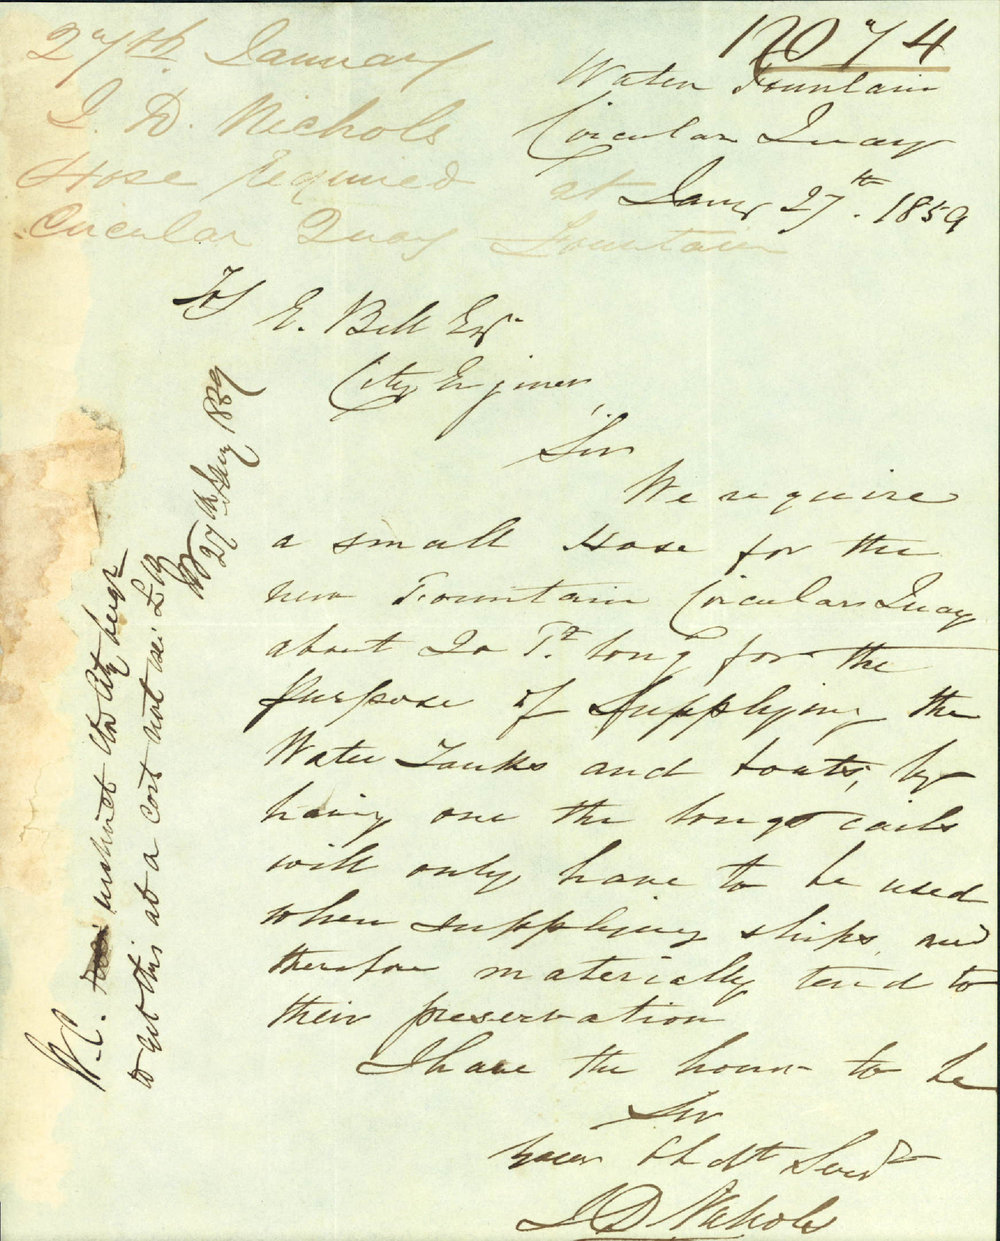 27th January
J. D. Nichols
Hose required at
Circular Quay Fountain
120/4
Water Fountain
Circular Quay
Jany 27th. 1859
To E. Bell Esqr
City Engineer
Sir
We require
a small Hose for the
new Fountain Circular Quay
about 20 Ft long for the
purpose of supplying the
Water Tanks and boats, by
having one the long coils
will only have to be used
when supplying ships and
therefore materially tend to
their preservation
I have the honor to be
Sir
Your Obdt Servt
J D Nichols
W.C. instruct the City
to get this at a cost not
27th Jany 1859